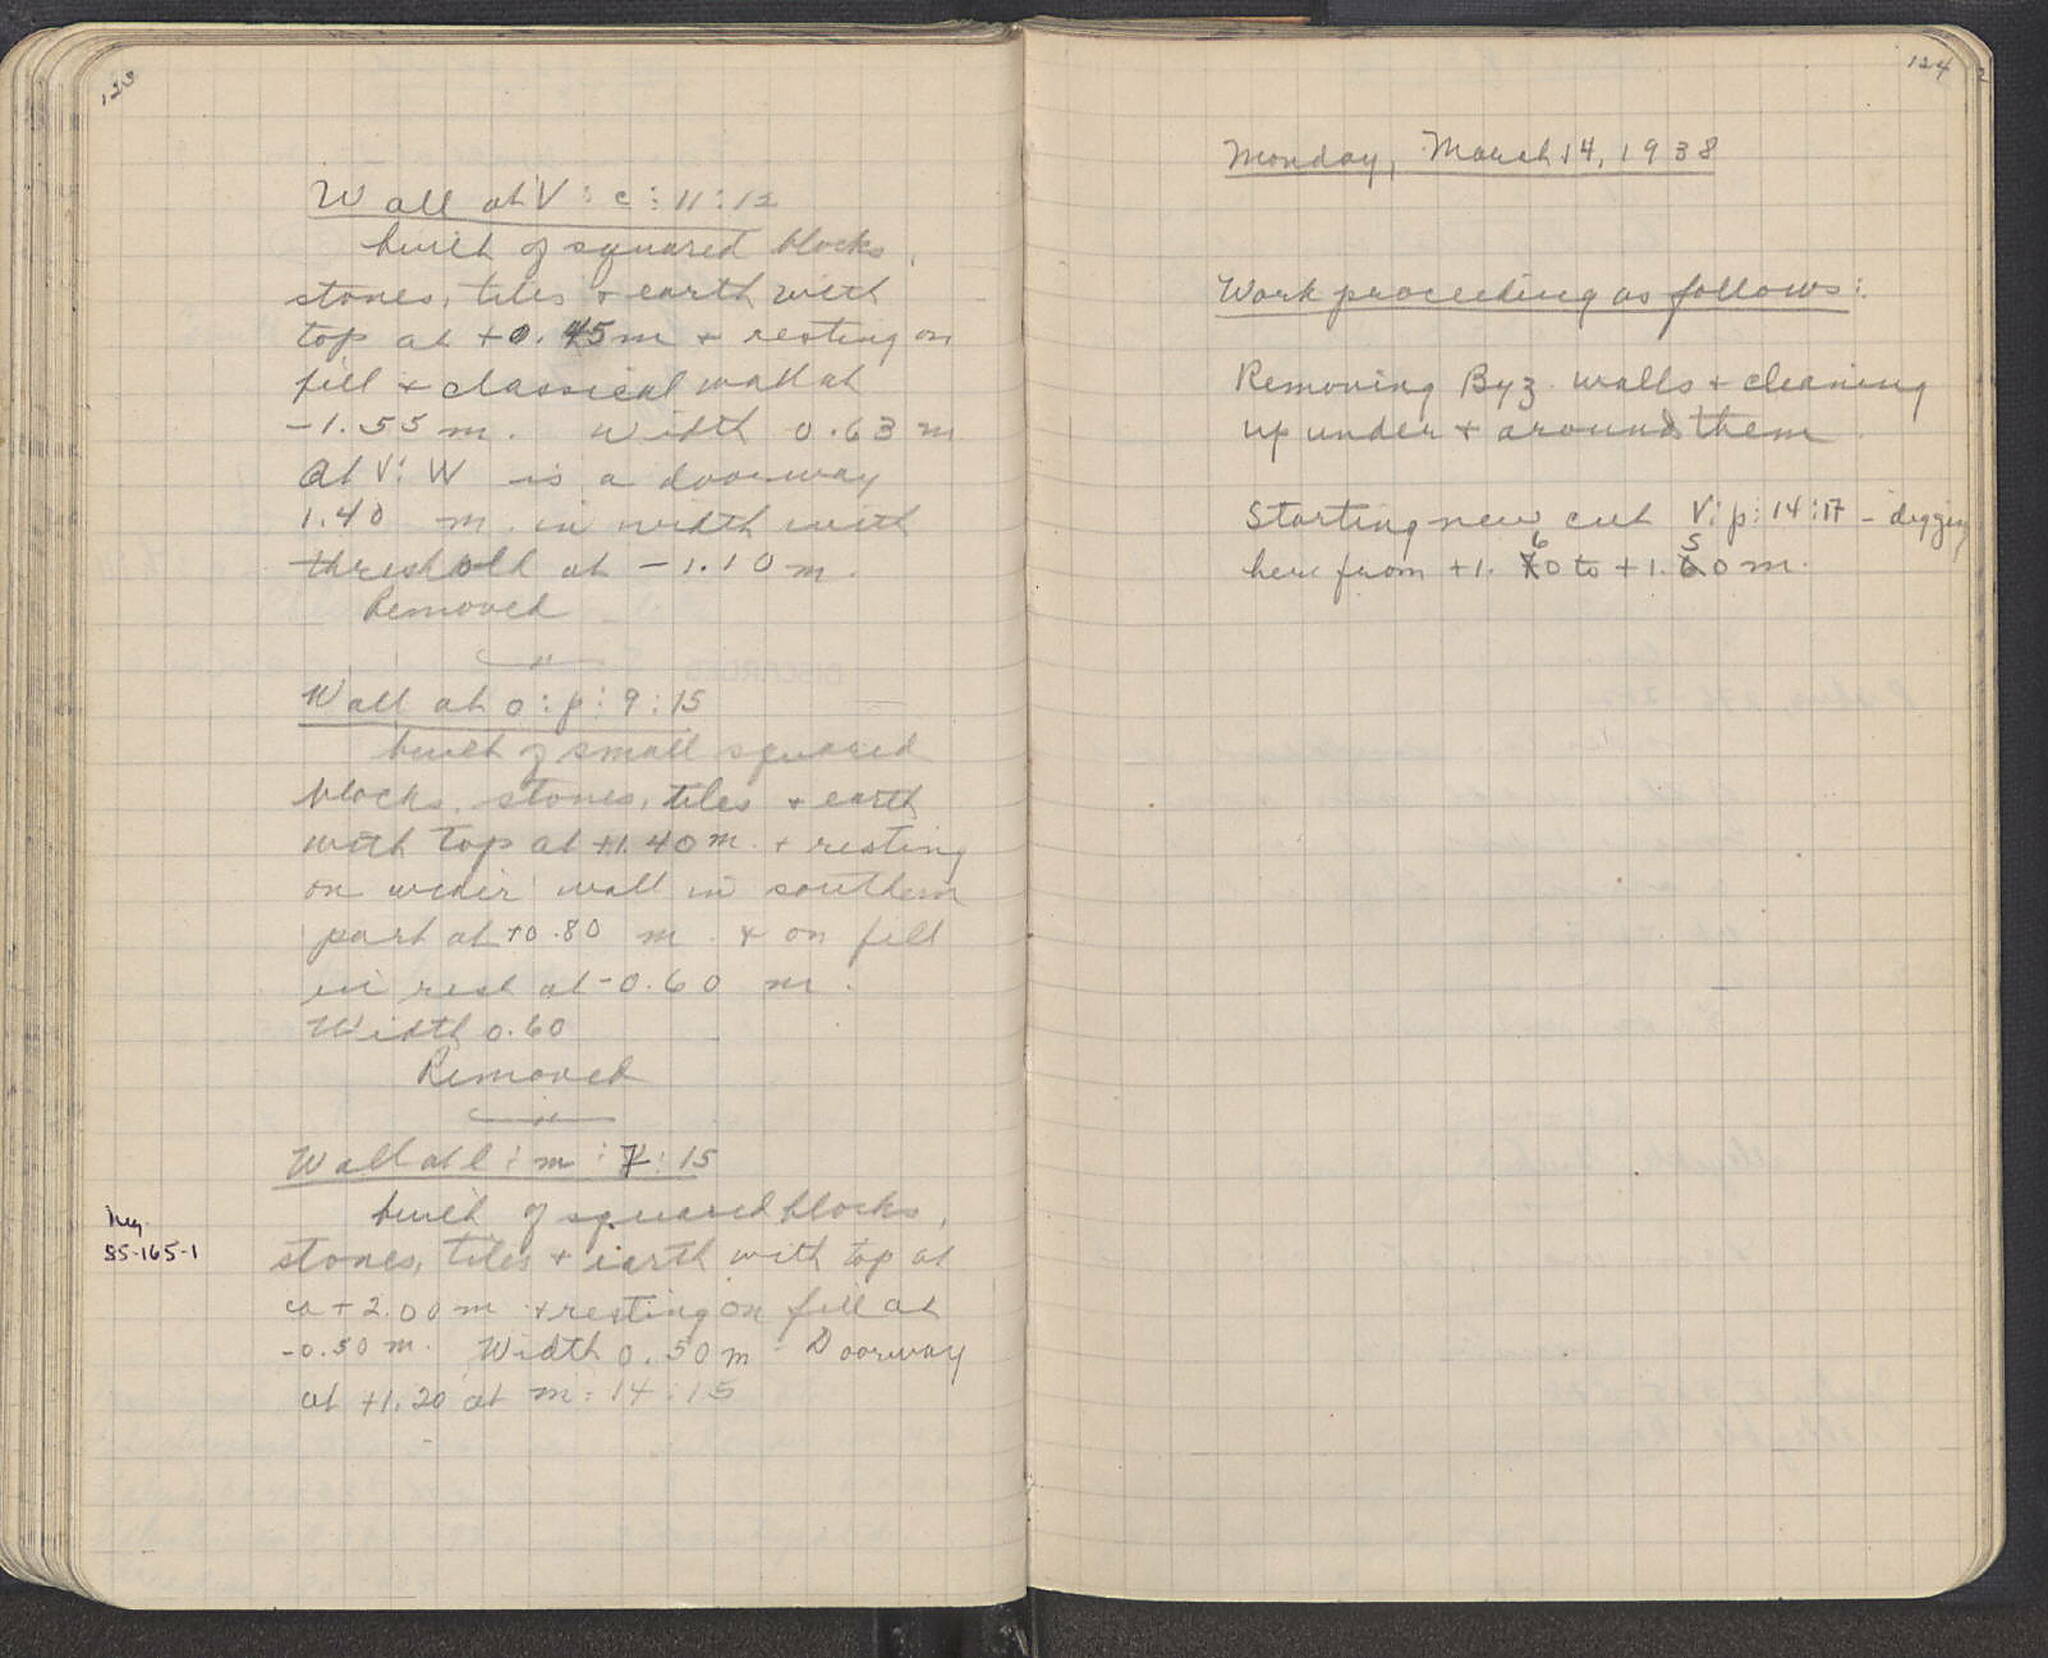 123
Wall at V : c : 11 : 12
built of squared blocks,
stones, tiles + earth with
top at +0.45 m + resting on
fill + classical wall at
-1.55 m. Width 0.63 m
At V: W is a doorway
1.40 m. in width with
threshold at -1.10 m.
Removed
Wall at o : p : 9 : 15
built of small squared
blocks, stones, tiles + earth
with top at +1.40 m. + resting
on wider wall in southern
part at +0.80 m. + on fill
in rest at -0.60 m.
Width 0.60
Removed
Wall at l : m : 7 : 15
built of squared blocks,
Neg.
85-165-1
stones, tiles + earth with top at
ca + 2.00 m + resting on fill at
-0.50 m. Width 0.50 m Doorway
at +1.20 at m : 14 : 15
124
Monday, March 14, 1938
Work proceeding as follows:
Removing Byz. walls + cleaning
up under + around them
Starting new cut V: p : 14 : 17 - digging
here from +1.60 to +1.50 m.